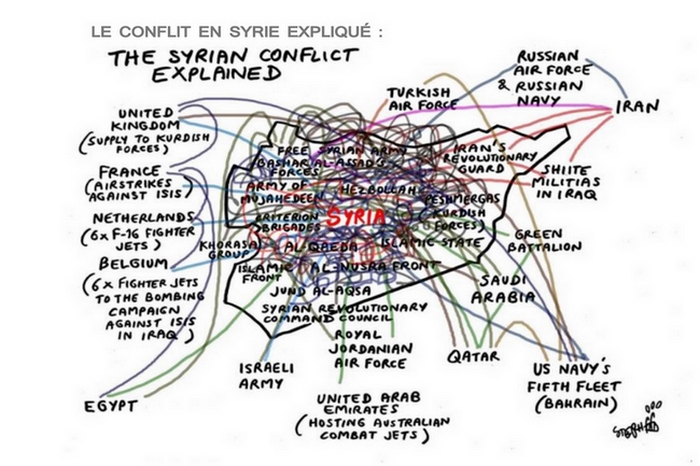 LE CONFLIT EN SYRIE EXPLIQUÉ :
THE SYRIAN CONFLICT
EXPLAINED
RUSSIAN
AIR FORCE
& RUSSIAN
NAVY
TURKISH
AIR FORCE
IRAN
UNITED
KINGDOM
(SUPPLY TO KURDISH
FORCES)
FRANCE
(AIRSTRIKES
AGAINST ISIS)
NETHERLANDS
(6x F-16 FIGHTER
JETS)
BELGIUM
(6x FIGHTER JETS
TO THE BOMBING
CAMPAIGN
AGAINST ISIS
IN IRAQ)
EGYPT
FREE SYRIAN ARMY
BASHAR AL-ASSAD'S
FORCES
IRAN'S
REVOLUTIONARY
GUARD
ARMY OF
MUJAHEDEEN
HEZBOLLAH
PESHMERGAS
(KURDISH
FORCES)
CRITERION
BRIGADES
SYRIA
KHORASA
GROUP
AL-QAEBA
ISLAMIC STATE
ISLAMIC
FRONT
AL-NUSRA FRONT
JUND AL-AQSA
SYRIAN REVOLUTIONARY
COMMAND COUNCIL
SHIITE
MILITIAS
IN IRAQ
GREEN
BATTALION
SAUDI
ARABIA
ISRAELI
ARMY
ROYAL
JORDANIAN
AIR FORCE
UNITED ARAB
EMIRATES
(HOSTING AUSTRALIAN
COMBAT JETS)
QATAR
US NAVY'S
FIFTH FLEET
(BAHRAIN)